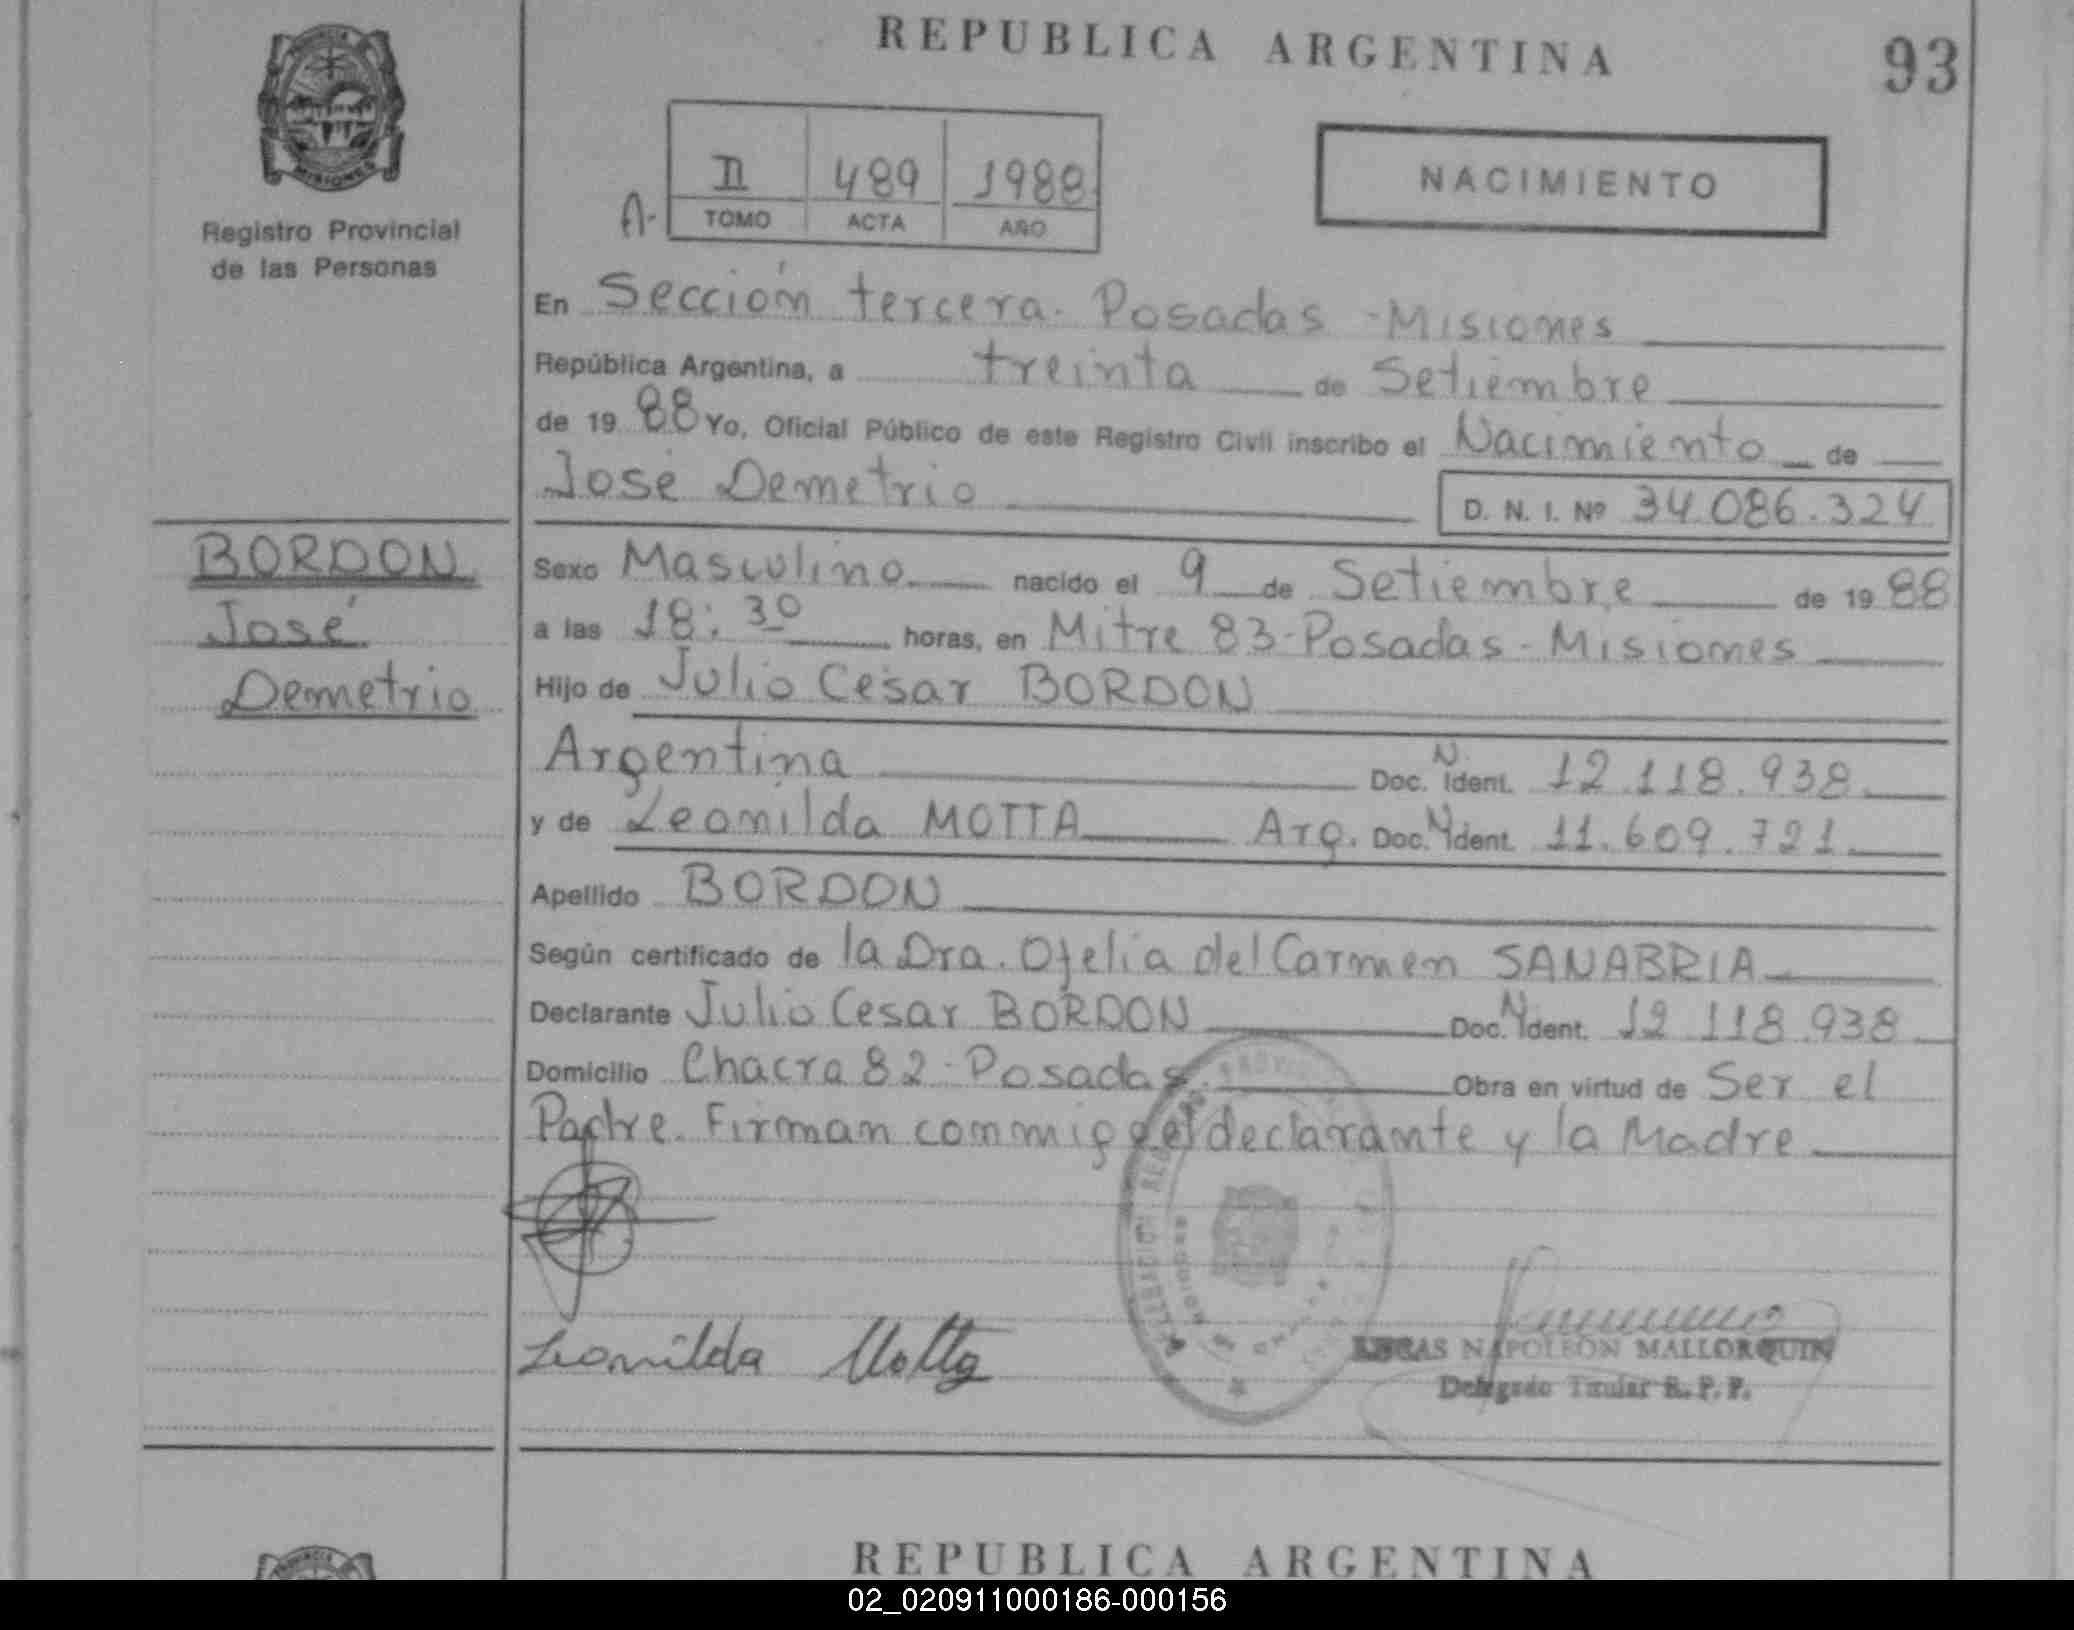 REPUBLICA ARGENTINA
93
PROVINCIA
MISIONES
Registro Provincial
de las Personas
A- II 489 1988
TOMO ACTA AÑO
NACIMIENTO
En Sección tercera. Posadas - Misiones
República Argentina, a treinta de Setiembre
de 19 88 Yo, Oficial Público de este Registro Civil inscribo el Nacimiento de
José Demetrio D. N. I. Nº 34.086.324
BORDON
José
Demetrio
Sexo Masculino nacido el 9 de Setiembre de 19 88
a las 18:30 horas, en Mitre 83-Posadas-Misiones
Hijo de Julio Cesar BORDON
Argentina Doc. N. Ident. 12.118.938
y de Leonilda MOTTA Arg. Doc. N Ident. 11.609.721
Apellido BORDON
Según certificado de la Dra. Ofelia del Carmen SANABRIA
Declarante Julio Cesar BORDON Doc. N Ident. 12 118.938
Domicilio Chacra 82 - Posadas. Obra en virtud de Ser el
Padre. Firman conmigo el declarante y la Madre
Leonilda Motta
LUCAS NAPOLEON MALLORQUIN
Delegado Titular R. P. P.
REPUBLICA ARGENTINA
02_020911000186-000156